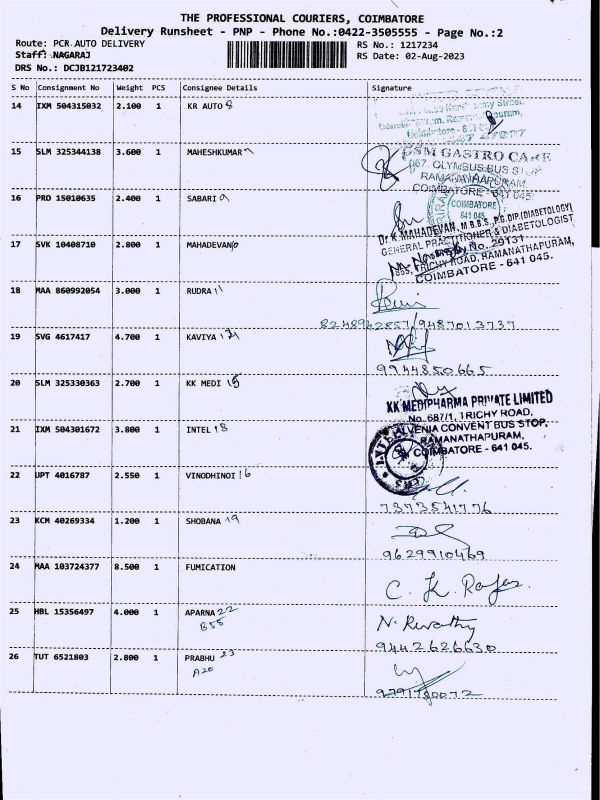 THE PROFESSIONAL COURIERS, COIMBATORE
Delivery Runsheet - PNP - Phone No.:0422-3505555 - Page No.:2
Route: PCR AUTO DELIVERY
RS No.: 1217234
Staff: NAGARAJ
RS Date: 02-Aug-2023
DRS No.: DCJB121723402
S No Consignment No Weight PCS Consignee Details Signature
14 IXM 504315032 2.100 1 KR AUTO 8
15 SLM 325344138 3.600 1 MAHESHKUMAR
GSM GASTRO CARE
967, OLYMBUS BUS STOP
RAMANATHAPURAM,
COIMBATORE - 641 045
16 PRO 15010635 2.400 1 SABARI
COIMBATORE
641 045
17 SVK 10408710 2.800 1 MAHADEVAN
Dr.K.MAHADEVAN, M.B.B.S., P.G.DIP.(DIABETOLOGY)
GENERAL PRACTITIONER & DIABETOLOGIST
No. 29131
TRICHY ROAD, RAMANATHAPURAM,
COIMBATORE - 641 045.
18 MAA 860992054 3.000 1 RUDRA 11
8248942857/9487013737
19 SVG 4617417 4.700 1 KAVIYA
9944850665
20 SLM 325330363 2.700 1 KK MEDI 15
KK MEDIPHARMA PRIVATE LIMITED
No. 687/1, TRICHY ROAD,
ALVENIA CONVENT BUS STOP,
RAMANATHAPURAM,
COIMBATORE - 641 045.
21 IXM 504301672 3.800 1 INTEL 18
22 UPT 4016787 2.550 1 VINODHINOI 16
7373541776
23 KCM 40269334 1.200 1 SHOBANA 19
9629910469
24 MAA 103724377 8.500 1 FUMICATION
C. K. Rajas
25 HBL 15356497 4.000 1 APARNA 22
B55
N. Revathy
9442626630
26 TUT 6521803 2.800 1 PRABHU 23
A20
9791780072